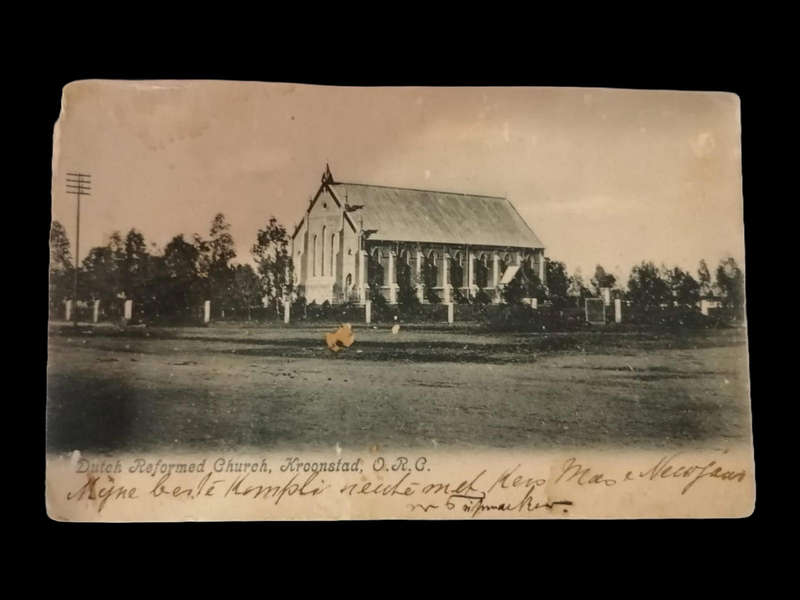 Dutch Reformed Church, Kroonstad, O.R.C.
Mijne beste Komplimente met Kers Mas e Nieojaar